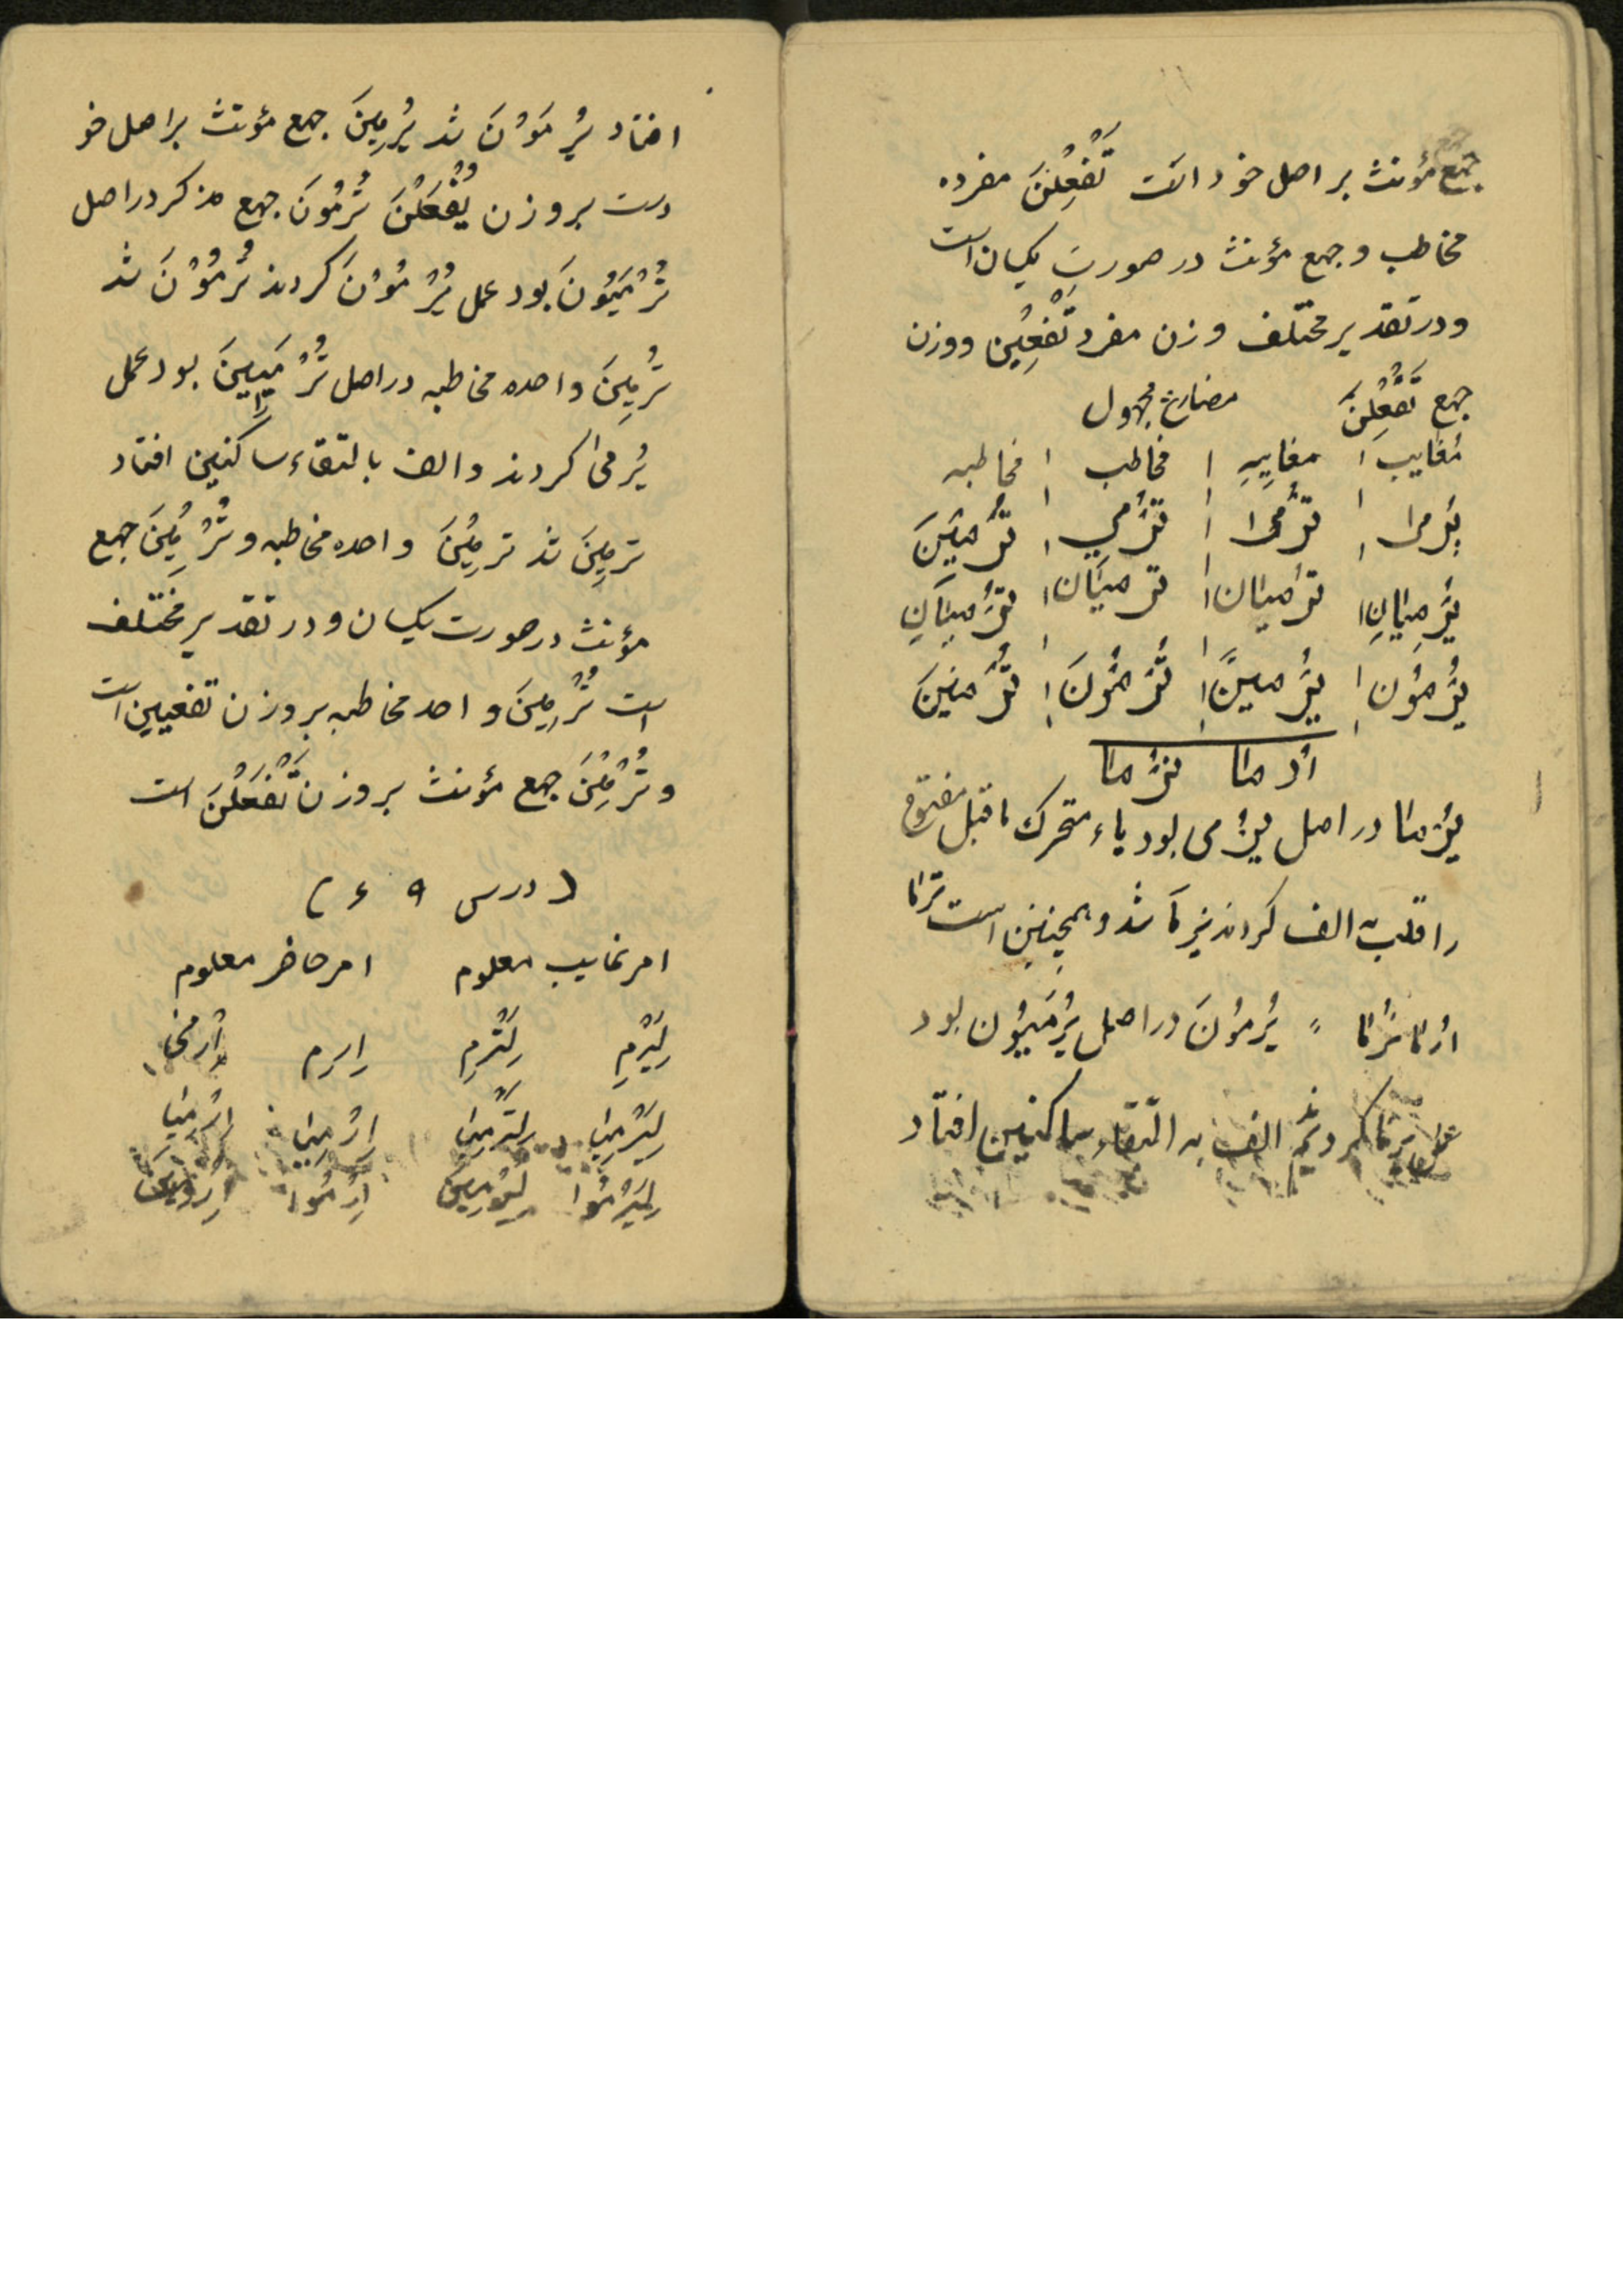 جمع مؤنث بر اصل خود است تَفْعِلْنَ مفرده
مخاطب و جمع مؤنث در صورت یکسان است
و در تقدیر مختلف وزن مفرد تَفْعِیْنَ ووزن
جمع تَفْعِلْنَ مضارع مجهول
مغایب مغایبه مخاطب مخاطبه
یُرْمیٰ تُرْمیٰ تُرْمي تُرْمَیْنَ
یُرْمَیَانِ تُرْمَیَان تُرْمَیَان تُرْمَیَانِ
یُرْمَوْن یُرْمَیْنَ تُرْمَوْنَ تُرْمَیْنَ
اُرْمَا نُرْمَا
یُرْمَا در اصل یُرْمی بود یاء متحرک ماقبل مفتوح
را قلب به الف کردند یُرمَا شد و همچنین است تُرْمَا
اُرْمَا نُرْمَا " یُرْمَوْنَ در اصل یُرْمَیُوْن بود
کردند الف به التقاء ساکنین افتاد
افتاد یُرْمَوْنَ شد یُرْمِیْنَ جمع مؤنث بر اصل خو
دست بر وزن یُفْعَلْنَ تُرْمُونَ جمع مذکر در اصل
تُرْمَیُونَ بود عمل یُرْمَوْنَ کردند تُرْمَوْنَ شد
تُرْمِیْنَ واحده مخاطبه در اصل تُرْمَیِیْنَ بود عمل
یُرمیٰ کردند و الف بالتقاء ساکنین افتاد
ترمِیْنَ شد ترمِیْنَ واحده مخاطبه و تُرْمِیْنَ جمع
مؤنث در صورت یکسان و در تقدیر مختلف
است تُرْمِیْنَ واحد مخاطبه بر وزن تفعیین است
و تُرْمِیْنَ جمع مؤنث بر وزن تُفْعَلْنَ است
( درس ۹ ۶ )
امر غایب معلوم امر حاضر معلوم
لِیَرْمِ لِتَرْمِ اِرْمِ اِرْمِی
لِیَرْمِیَا لِتَرْمِیَا اِرْمِیَا اِرْمِیَا
لِیَرْمُوْا لِیَرْمِیْنَ اِرْمُوا اِرْمِیْنَ